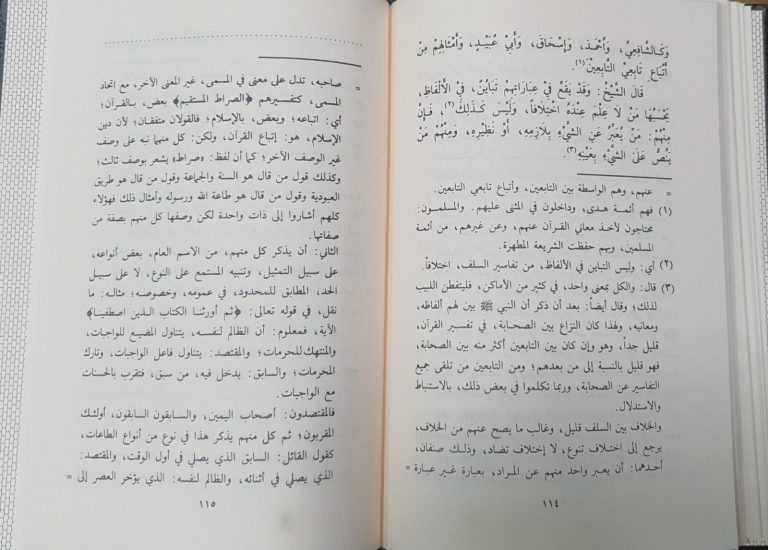 وَكَالشَّافِعِيِّ، وَأَحْمَدَ، وَإِسْحَاقَ، وَأَبِيْ عُبَيْدٍ، وَأَمْثَالِهِمْ مِنْ
أَتْبَاعِ تَابِعِيْ التَّابِعِيْنَ(١).
قَالَ الشَّيْخُ: وَقَدْ يَقَعُ فِيْ عِبَارَاتِهِمْ تَبَايُنٌ، فِيْ الأَلْفَاظِ،
يَحْسَبُهَا مَنْ لَا عِلْمَ عِنْدَهُ اخْتِلَافاً، وَلَيْسَ كَذَلِكَ(٢)، فَإِنَّ
مِنْهُمْ: مَنْ يُعَبِّرُ عَنِ الشَّيْءِ بِلَازِمِهِ، أَوْ نَظِيْرِهِ، وَمِنْهُمْ مَنْ
يَنُصُّ عَلَىَ الشَّيْءِ بِعَيْنِهِ(٣).
= عنهم، وهم الواسطة بين التابعين، وأتباع تابعي التابعين.
(١) فهم أئمة هدى، وداخلون في المثنى عليهم. والمسلمون:
محتاجون لأخذ معاني القرآن عنهم، وعن غيرهم، من أئمة
المسلمين، وبهم حفظت الشريعة المطهرة.
(٢) أي: وليس التباين في الألفاظ، من تفاسير السلف، اختلافاً.
(٣) قال: والكل بمعنى واحد، في كثير من الأماكن، فليتفطن اللبيب
لذلك؛ وقال أيضاً: بعد أن ذكر أن النبي ﷺ بين لهم ألفاظه،
ومعانيه، ولهذا كان النزاع بين الصحابة، في تفسير القرآن،
قليل جداً، وهو وإن كان بين التابعين أكثر منه بين الصحابة،
فهو قليل بالنسبة إلى من بعدهم؛ ومن التابعين من تلقى جميع
التفاسير عن الصحابة، وربما تكلموا في بعض ذلك، بالاستنباط
والاستدلال.
والخلاف بين السلف قليل، وغالب ما يصح عنهم من الخلاف،
يرجع إلى اختلاف تنوع، لا إختلاف تضاد، وذلك صنفان،
أحدهما: أن يعبر واحد منهم عن المراد، بعبارة غير عبارة =
١١٤
= صاحبه، تدل على معنى في المسمى، غير المعنى الآخر، مع اتحاد
المسمى، كتفسيرهم ﴿الصراط المستقيم﴾ بعض، بالقرآن؛
أي: اتباعه؛ وبعض، بالإسلام؛ فالقولان متفقان؛ لأن دين
الإسلام، هو: إتباع القرآن، ولكن: كل منهما نبه على وصف
غير الوصف الآخر؛ كما أن لفظ: «صراط» يشعر بوصف ثالث؛
وكذلك قول من قال هو السنة والجماعة وقول من قال هو طريق
العبودية وقول من قال هو طاعة الله ورسوله وأمثال ذلك فهؤلاء
كلهم أشاروا إلى ذات واحدة لكن وصفها كل منهم بصفة من
صفاتها.
الثاني: أن يذكر كل منهم، من الاسم العام، بعض أنواعه،
على سبيل التمثيل، وتنبيه المستمع على النوع، لا على سبيل
الحد، المطابق للمحدود، في عمومه، وخصوصه؛ مثاله: ما
نقل، في قوله تعالى: ﴿ثم أورثنا الكتاب الذين اصطفينا﴾
الآية، فمعلوم: أن الظالم لنفسه، يتناول المضيع للواجبات،
والمنتهك للحرمات؛ والمقتصد: يتناول فاعل الواجبات، وتارك
المحرمات؛ والسابق: يدخل فيه، من سبق، فتقرب بالحسنات
مع الواجبات.
فالمقتصدون: أصحاب اليمين، والسابقون السابقون، أولئك
المقربون؛ ثم كل منهم يذكر هذا في نوع من أنواع الطاعات،
كقول القائل: السابق الذي يصلي في أول الوقت، والمقتصد:
الذي يصلي في أثنائه، والظالم لنفسه: الذي يؤخر العصر إلى =
١١٥